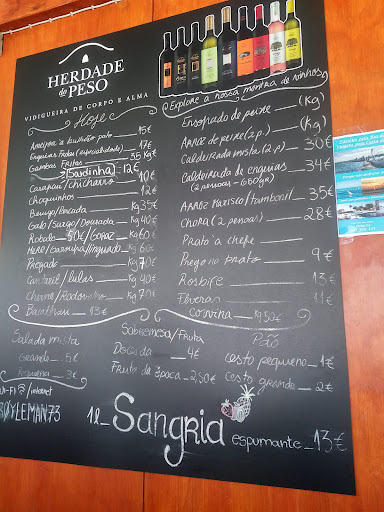 HERDADE
do PESO
VIDIGUEIRA DE CORPO E ALMA
Hoje
Ameijoa à bulhão pato 15€
Enguias Fritas (especialidade) 47€
Gambas Fritas 35 Kg€
Sardinha 12€
Carapau/chicharro 10€
Choquinhos 12€
Besugo/Bocada Kg 35€
Galo/Sargo/Dourada Kg 40€
Robalo 50€/Goraz 60€
Mero/Garoupa/linguado Kg 60€
Pregado Kg 70€
Cantaril/lulas Kg 40€
Cherne/Rodovalho Kg 70€
Bacalhau 13€
Salada mista
Grande 5€
Pequena 3€
Wi-Fi / internet
LEMAN73
Explore a nossa montra de vinhos
Ensopado de peixe (Kg)
Arroz de peixe (2 p.) (Kg)
Caldeirada mista (2 p.) 30€
Caldeirada de enguias 34€
(2 pessoas - 650gr)
Arroz Marisco/tamboril 35€
Chora (2 pessoas) 28€
Prato à chefe
Prego no prato 9€
Rosbife 13€
Fêveras 11€
Corvina Kg 50€
Sobremesa/Fruta
Doçada 4€
Fruta da época 2,50€
Pão
Cesto pequeno 1€
Cesto grande 2€
1l_ Sangria espumante_13€